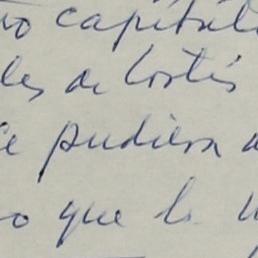 capítul
les de Cortés
se pudiera a
o que le